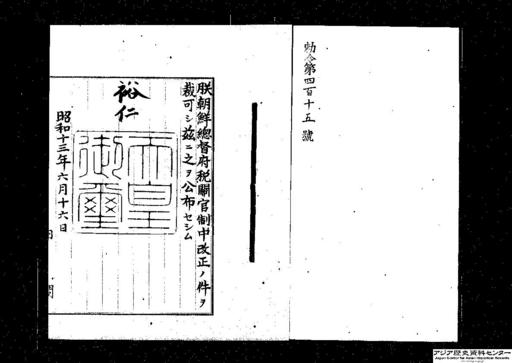 勅令第四百十五號
朕朝鮮總督府税關官制中改正ノ件ヲ
裁可シ茲ニ之ヲ公布セシム
裕仁
天皇御璽
昭和十三年六月十六日
アジア歴史資料センター
Japan Center for Asian Historical Records